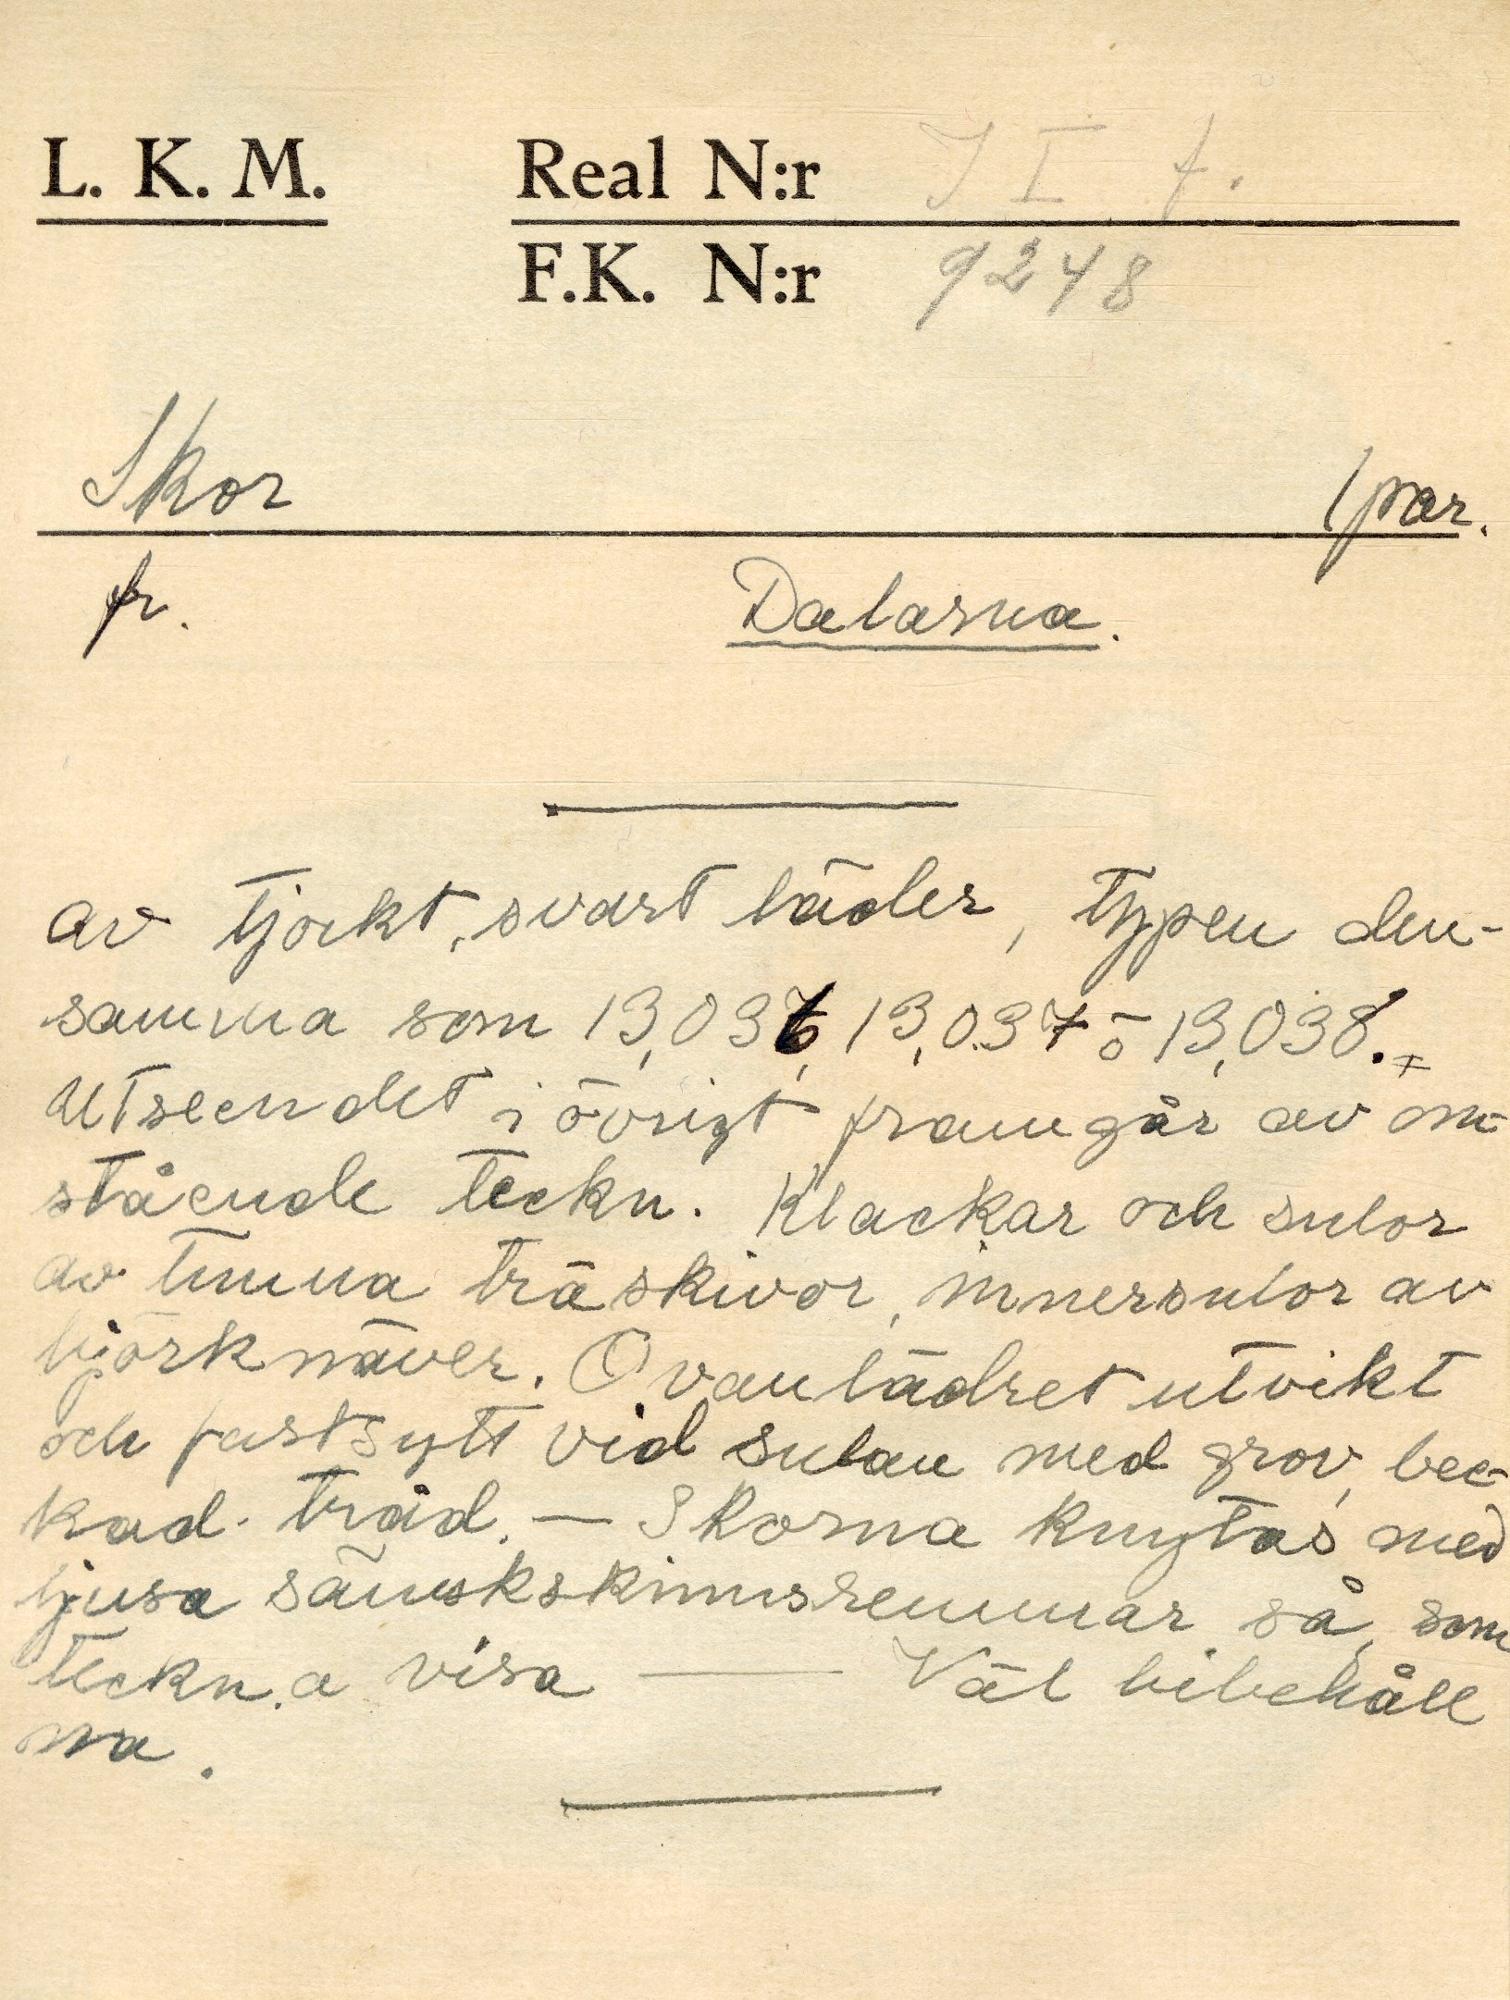 L. K. M. Real N:r I I f.
F.K. N:r 9248
Skor 1 par.
fr. Dalarna.
av tjockt, svart läder, typen den-
samma som 13,036, 13,037 o 13,038.
Utseendet i övrigt framgår av om-
stående teckn. Klackar och sulor
av tunna träskivor, innersulor av
björknäver. Ovanlädret utvikt
och fastsytt vid sulan med grov, bec-
kad tråd. — Skorna knytas med
ljusa sämskskinnsremmar så, som
teckn.a visa — Väl bibehåll
na.